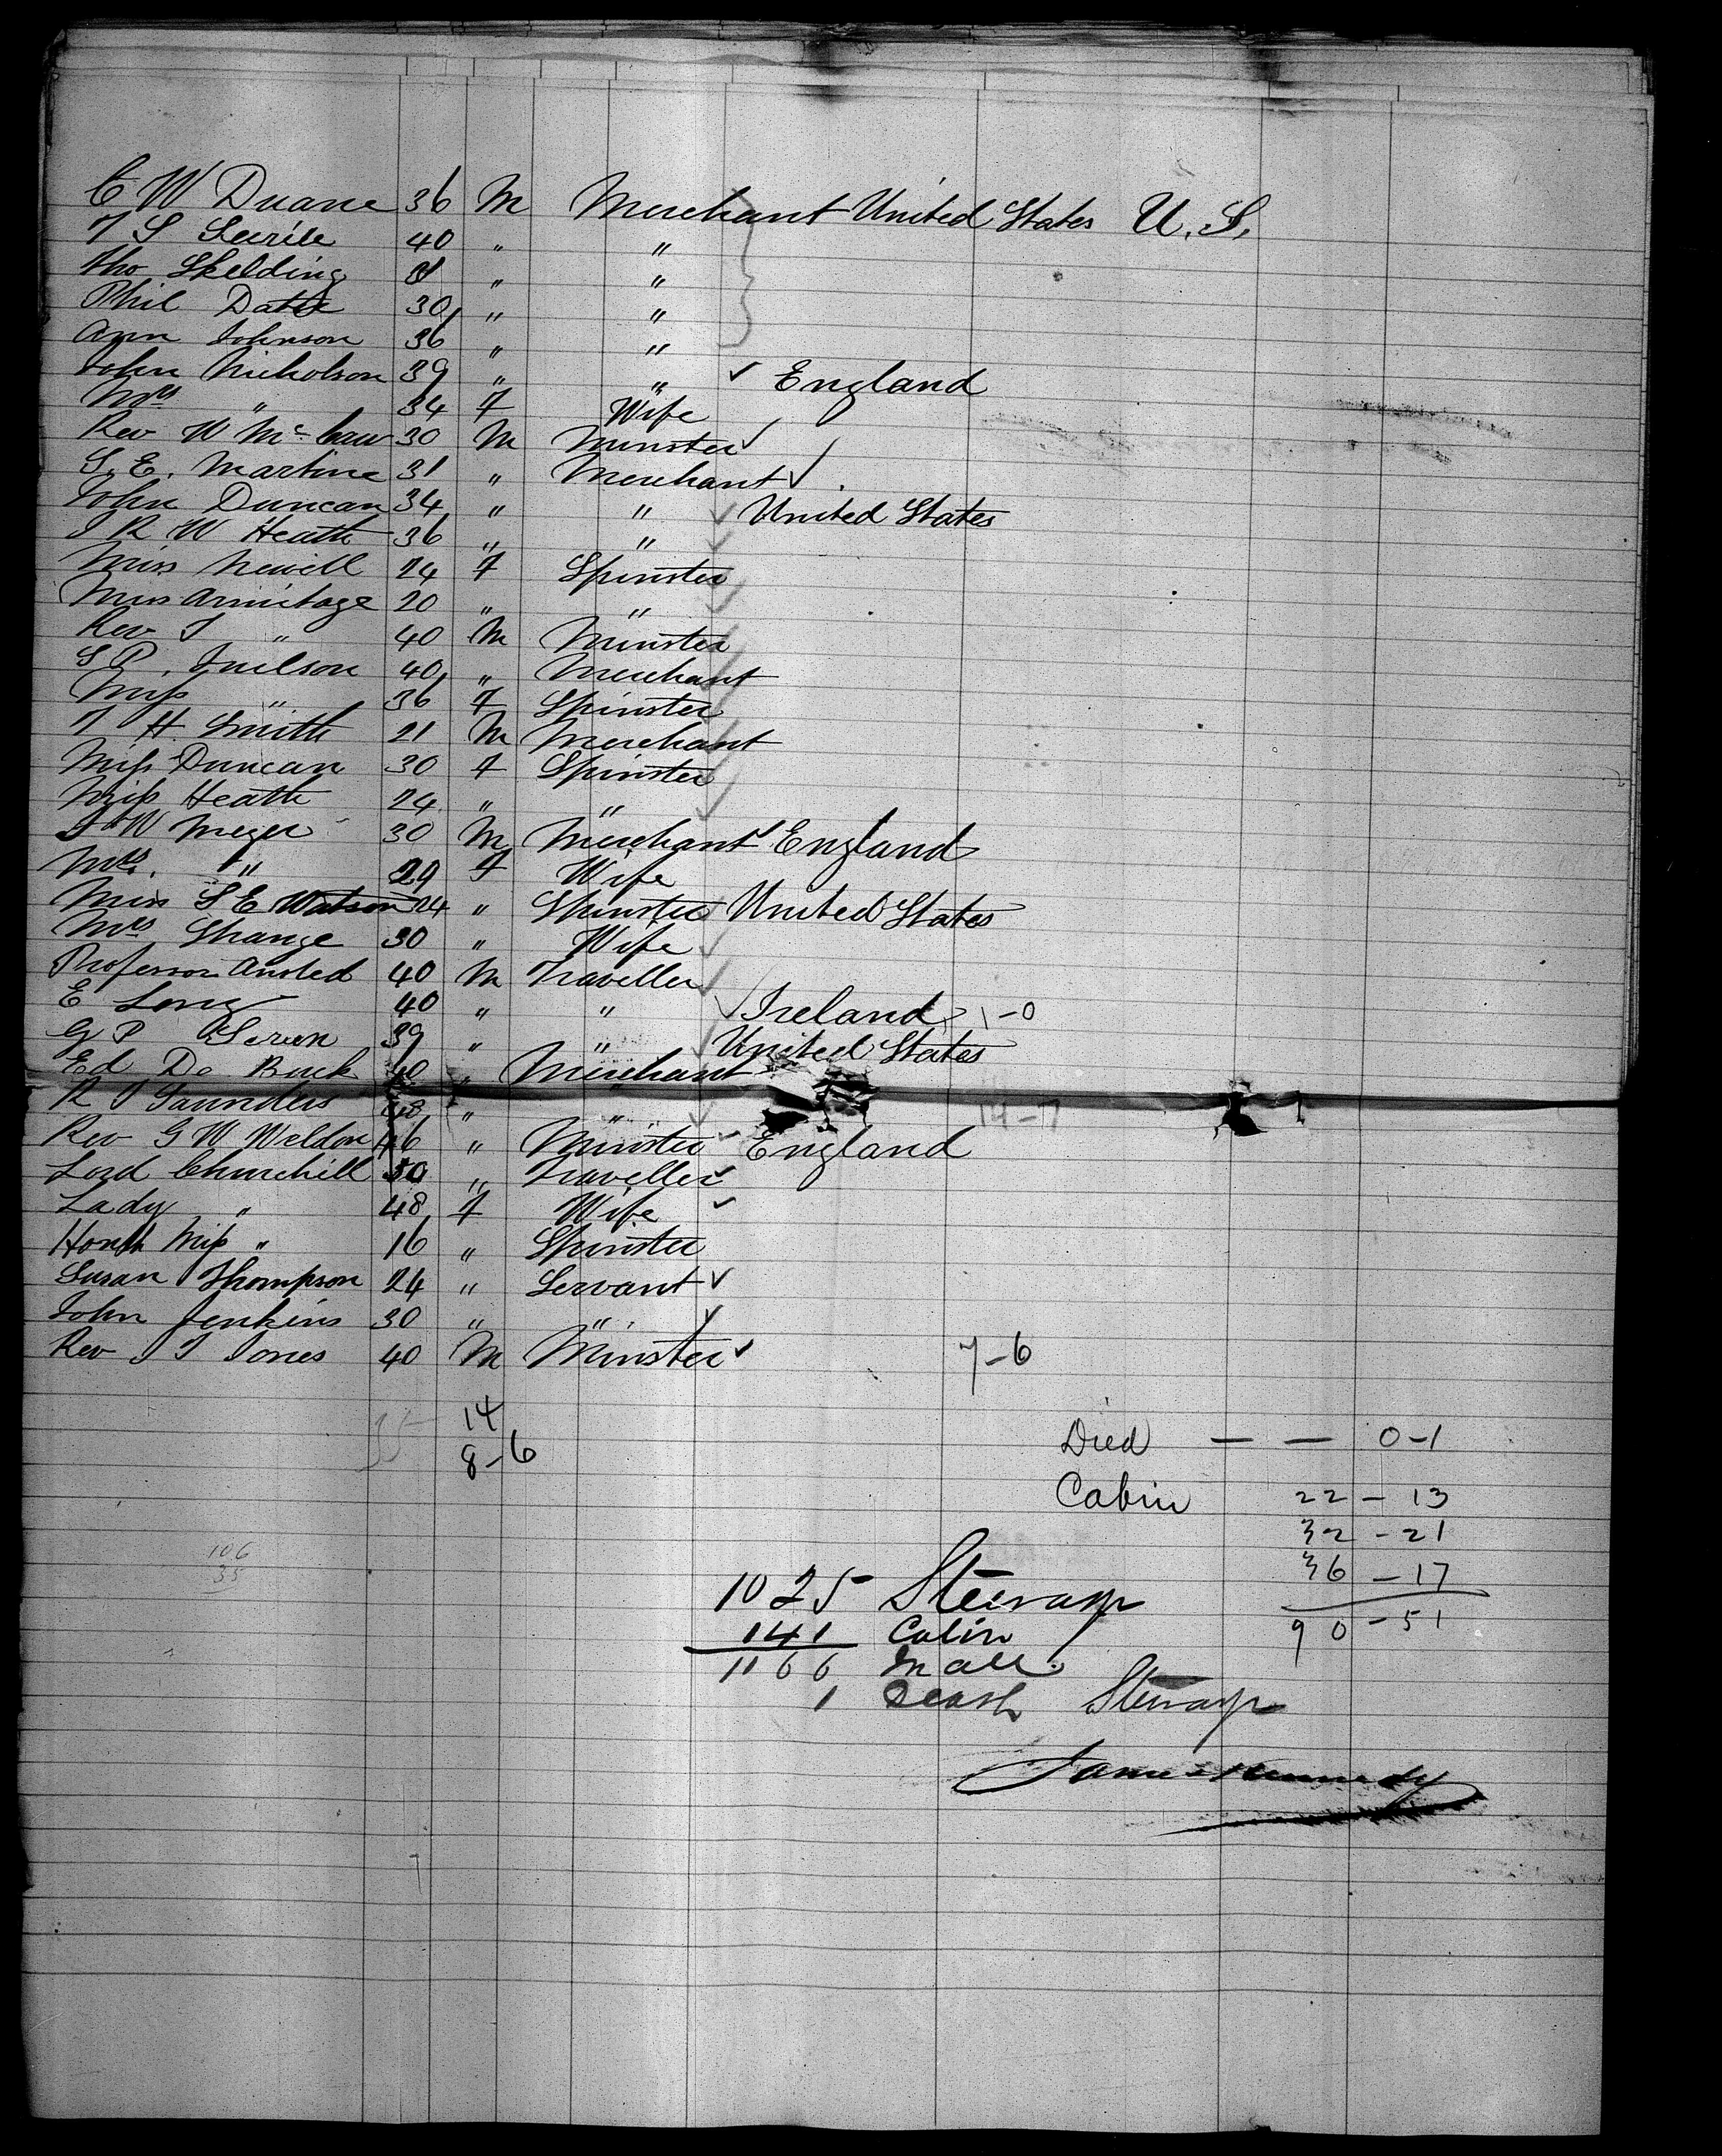 C W Duane 36 M Merchant United States U.S.
T S 40 " "
Tho Skelding " "
Phil 30 " "
Ann Johnson 36 " "
John Nicholson 39 " " England
Mrs " 34 F Wife
Rev W 30 M Minster
S. E. Martine 31 " Merchant
John Duncan 34 " " United States
J R W Heath 36 " "
Miss Newell 24 F Spinster
Miss Armitage 20 " "
Rev J " 40 M Minster
S P. 40 " Merchant
Miss " 36 F Spinster
T H Smith 21 M Merchant
Miss Duncan 30 F Spinster
Miss Heath 24 " "
J W Meyer 30 M Merchant England
Mrs. " 29 F Wife
Miss S E Watson 24 " Spinster United States
Mrs Strange 30 " Wife
Professor Ansted 40 M Traveller
E Long 40 " " Ireland 1-0
G P 39 " " United States
Ed De Buck 40 " Merchant
R Saunders 48 " " 14-7
Rev G W Weldon 46 " Minster England
Lord Churchill 50 " Traveller
Lady " 48 F Wife
Miss " 16 " Spinster
Susan Thompson 24 " Servant
John Jenkins 30 " "
Rev J T Jones 40 M Minster 7-6
35 14
8-6
Died — — 0-1
Cabin 22 - 13
32 - 21
36 - 17
90 - 51
106
35
1025 Steerage
141 Cabin
1166 in all.
1 Death Steerage
James Kennedy